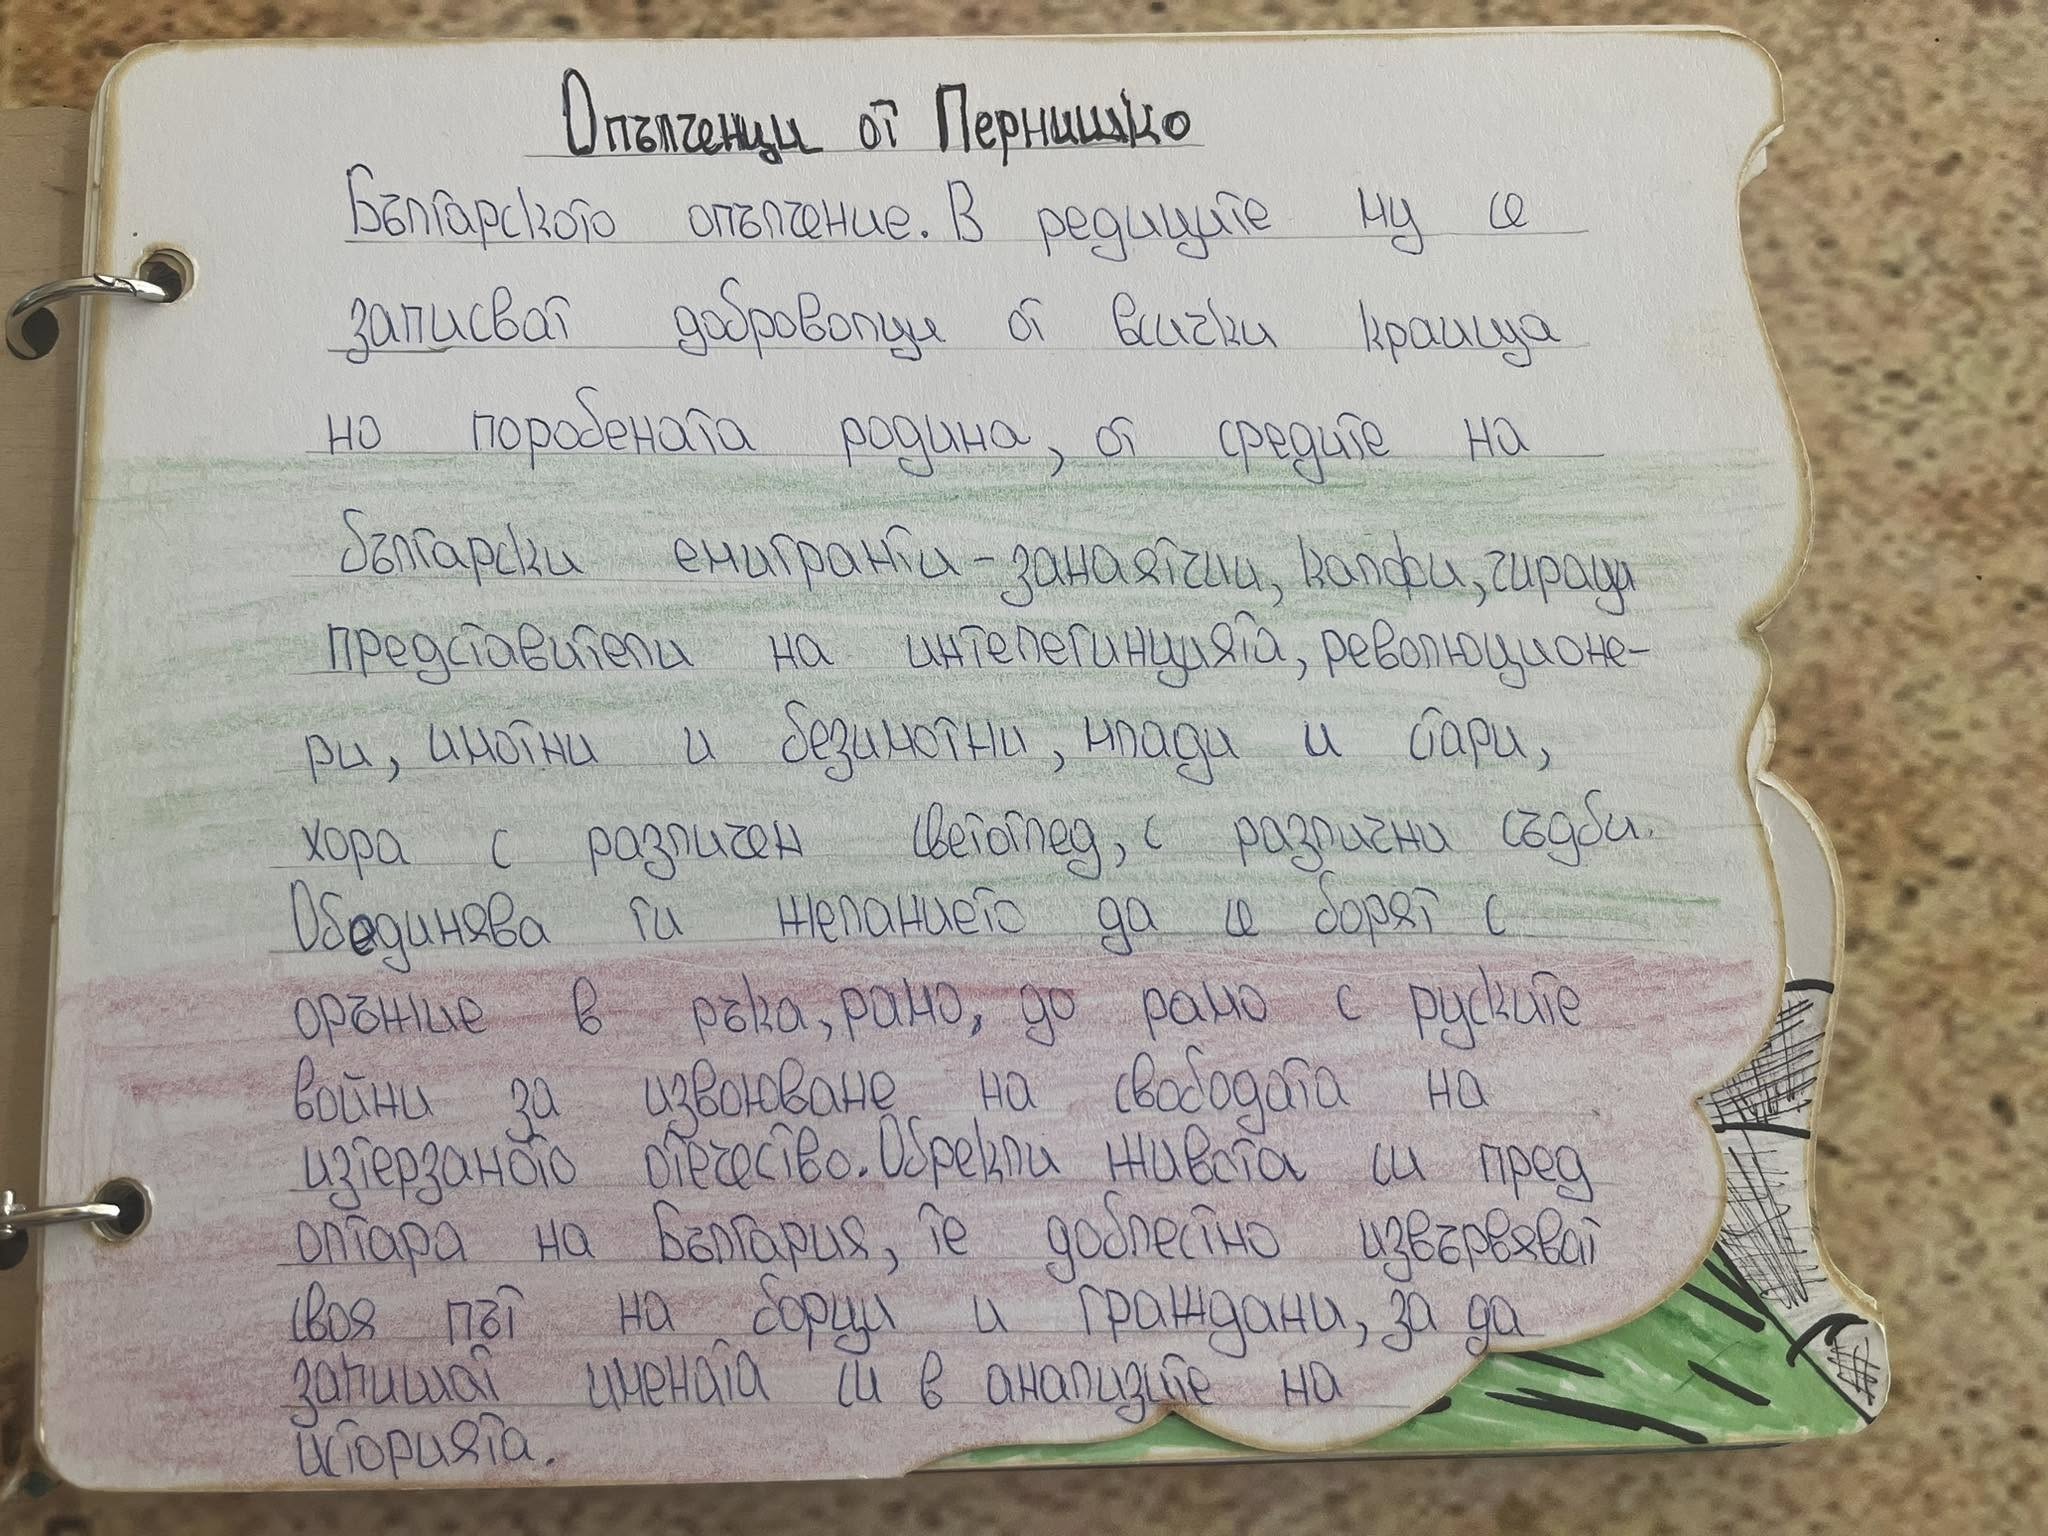 Опълченци от Пернишко
Българското опълчение. В редиците му се
записват доброволци от всички краища
но поробената родина, от средите на
български емигранти - занаятчии, калфи, чираци
представители на интелегинцията, революционе-
ри, имотни и безимотни, млади и стари,
хора с различен светоглед, с различни съдби.
Обединява ги желанието да се борят с
оръжие в ръка, рамо, до рамо с руските
войни за извоюване на свободата на
изтерзаното отечество. Обрекли живота си пред
олтара на България, те доблестно извървяват
своя път на борци и граждани, за да
запишат имената си в анализите на
историята.